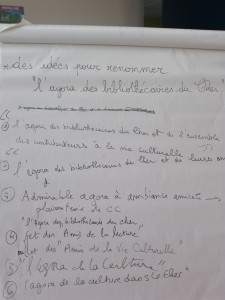 * des idées pour renommer
"l'agora des bibliothécaires du Cher"
"
① l'agora des bibliothécaires du Cher et de l'ensemble
des contributeurs à la vie culturelle
"
② l'agora des bibliothécaires du Cher et de leurs
③ Admirable agora à ambiance amicale
plaisanterie de CC
"l'Agora des bibliothécaires du cher
④ et des Amis de la lecture"
et des "Amis de la Vie Culturelle"
⑤ "l'Agora de la Culture"
⑥ l'agora de la culture dans le Cher"